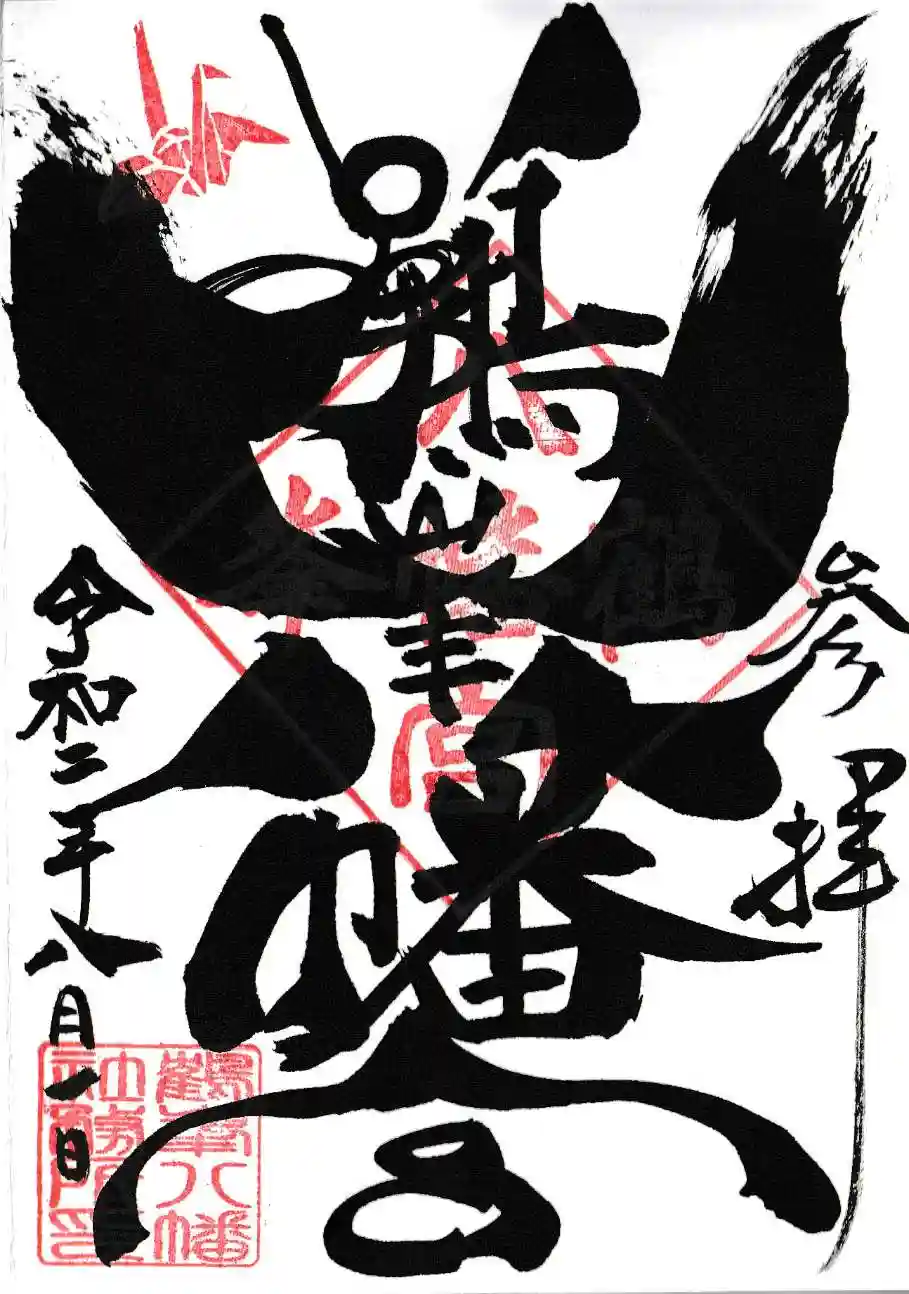 参拝
鶴峯八幡宮
令和二年八月一日
鶴峯八幡
社務所印